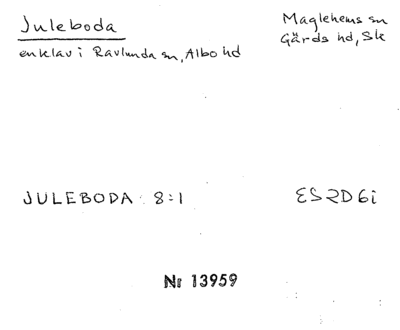 Juleboda
Maglehems sn
Gärds hd, Sk
enklav i Ravlunda sn, Albo hd
JULEBODA 8:1
ES2D6i
Nr 13959